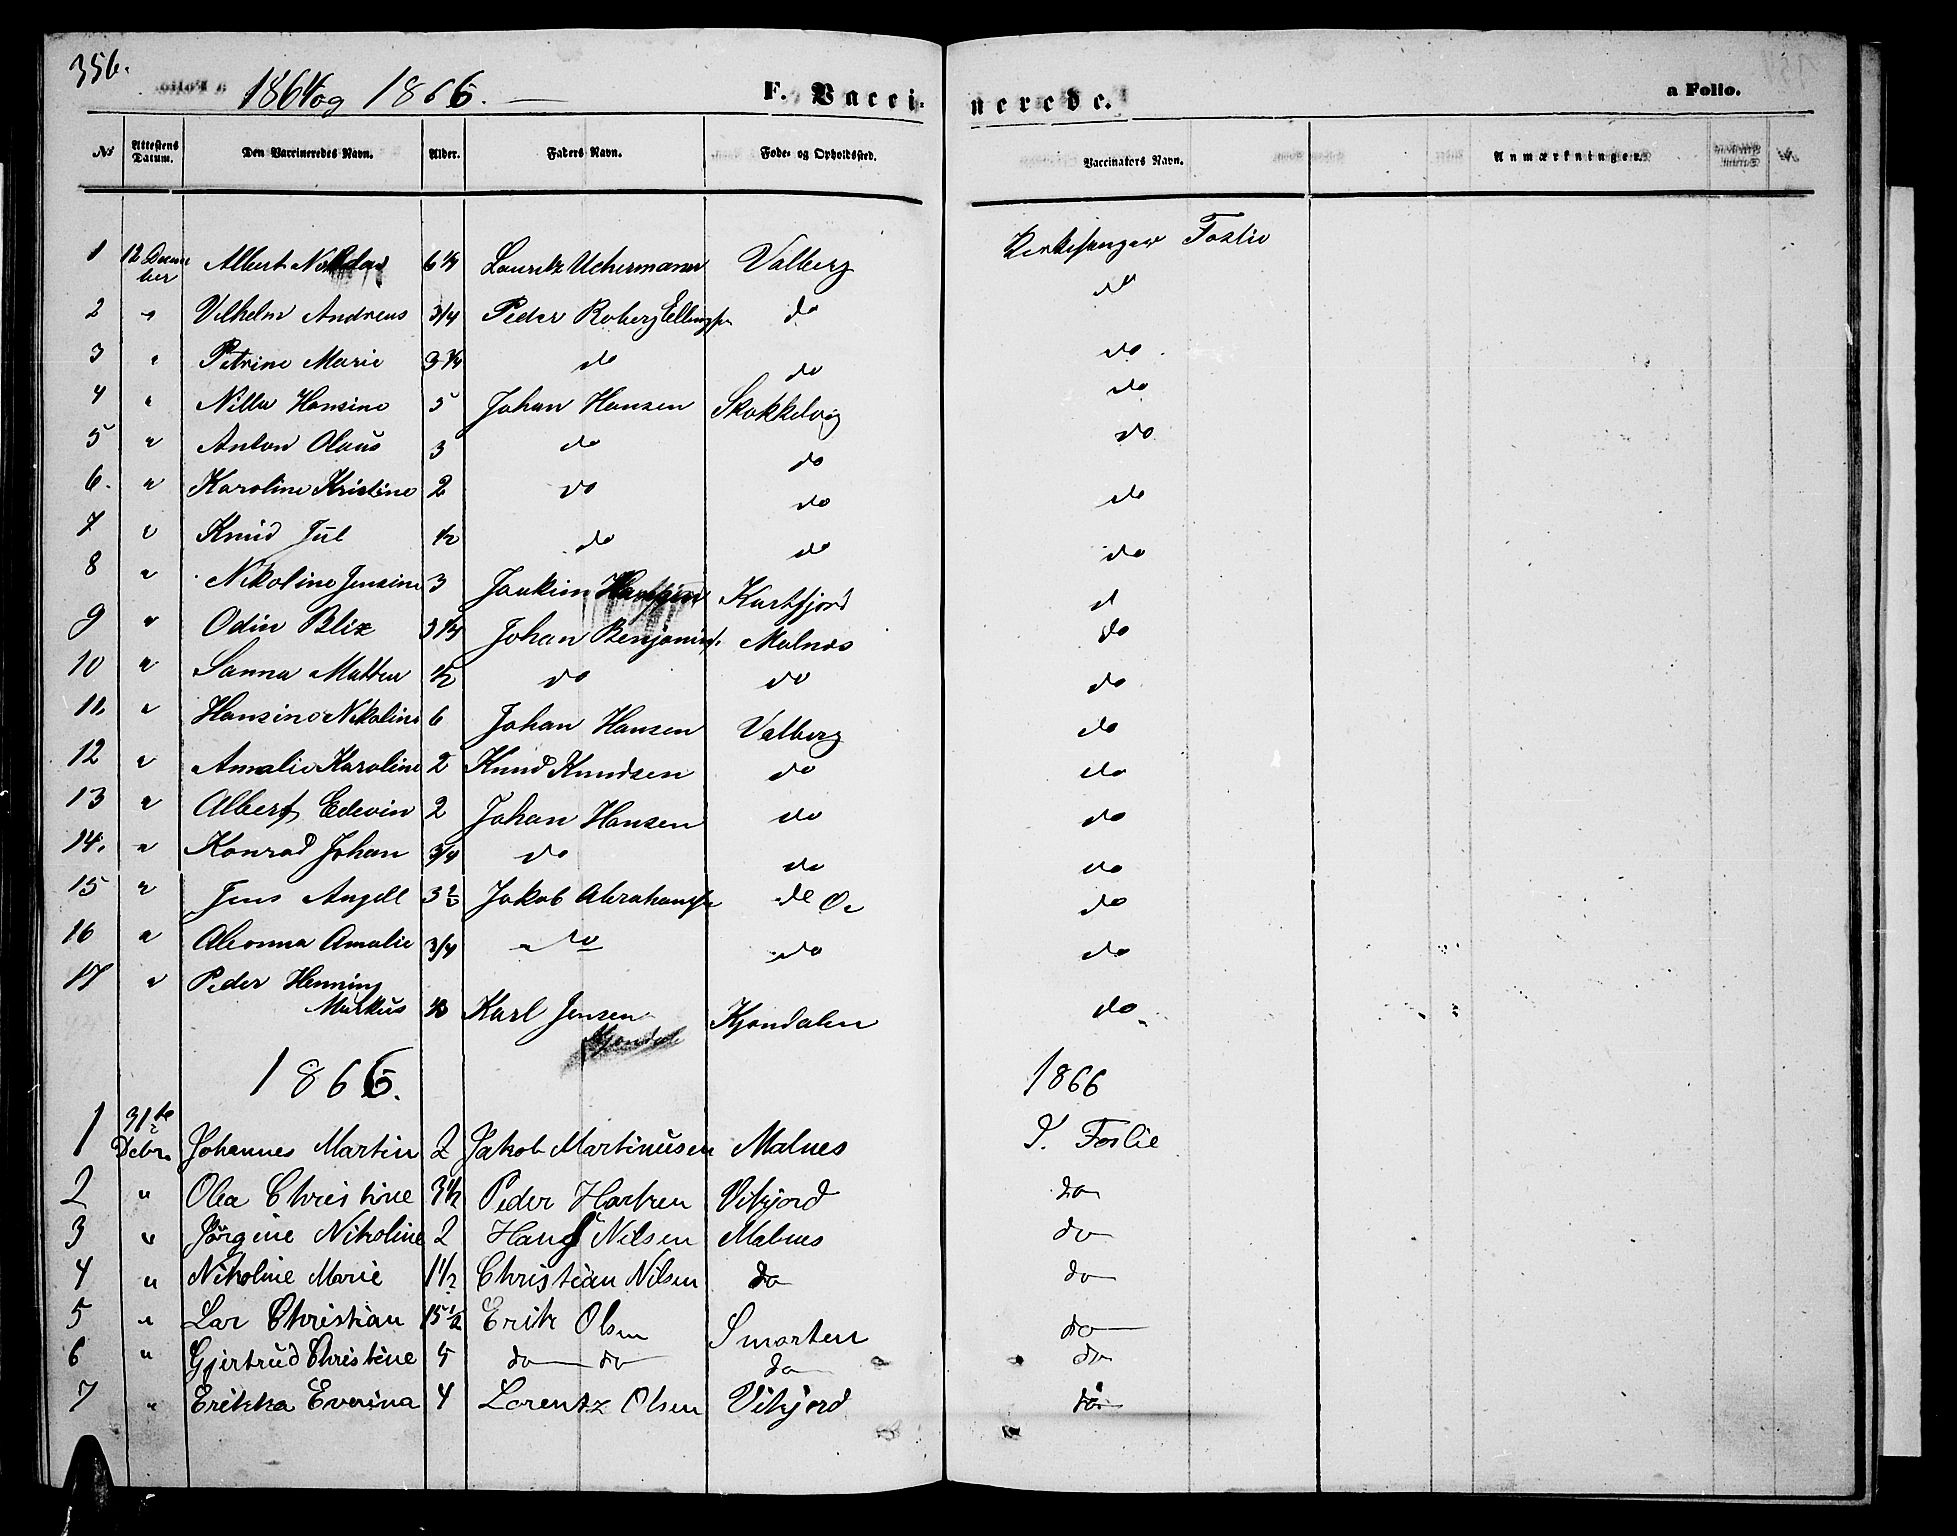 356.
1864 og 1866. F. Vaccinerede. a Folio.
No Attestens Datum. Den Vaccineredes Navn. Alder. Faders Navn. Føde- og Opholdssted. Vaccinators Navn. Anmærkninger.
1 12 Decem ber Albert 6 1/4 Lauritz Uchermann Valberg Kirkesanger Foslie
2 " Vilhelm Andreas 3/4 Peder Roberg Ellingsen do do
3 " Petrine Marie 3 1/4 do do do
4 " Nilla Hansine 5 Johan Hansen Skokkelvig do
5 " Anton Olaus 3 do do do
6. " Karoline Kristine 2 do do do
7 " Knud Jul 1/2 do do do
8 " Nikoline Jensine 3 Joakim Kartfjord d
9 " Odin Blix 3 1/4 Johan Benjamins. Malnes do
10 " Sanna Mathea 1/2 do do do
11. " Hansine Nikoline 6 Johan Hansen Valberg do
12 " Amalie Karoline 2 Knud Knudsen do do
13 " Albert Edevin 2 Johan Hansen do do
14. " Konrad Johan 3/4 do do do
15 " Jens Angell 3 Jakob Abrahams. do do
16 " Amalie 3/4 do do do
17 " Peder Henning
Markus Karl Jensen Kjøndalen do
1866. 1866
1 31te Debr. Johannes Martin 2 Jakob Martinusen Malnes Foslie
2 " Olea Christine 3 1/2 Peder Hartsen Vikjord do
3 " Jørgine Nikoline 2 Hans Nilsen Malnes do
4 " Nikoline Marie 1 1/2 Christian Nilsen do do
5 " Lar Christian 15 1/2 Erik Olsen Smorten do
6 " Gjertrud Christine 5 do do do do
7 " Erikka Everina 4 Lorentz Olsen Vikjord do